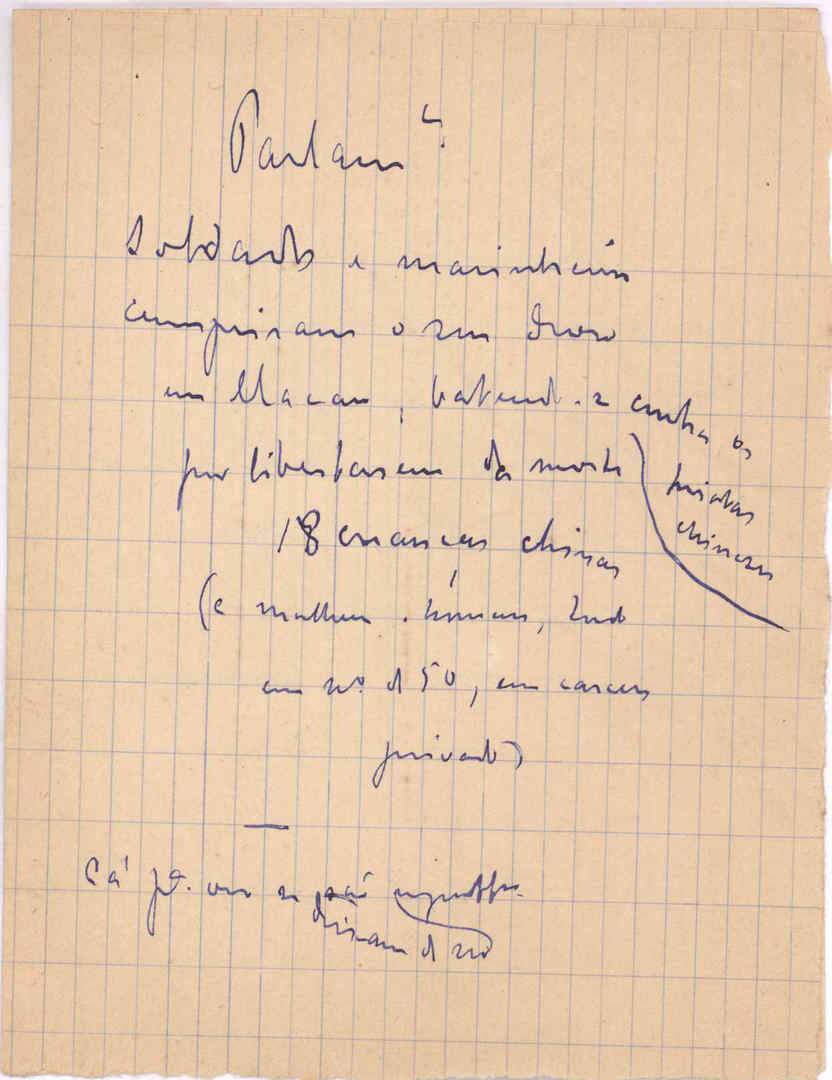 Parlam.to
Soldados e marinheiros
cumpriram o seu dever
em Macau, batendo-se contra os
piratas
chineses
por libertarem da morte
18 creanças chinas
(e mulheres. homens, tudo
em nº. de 50, em carcere
privado)
—
Cá já. se
deixam de ser